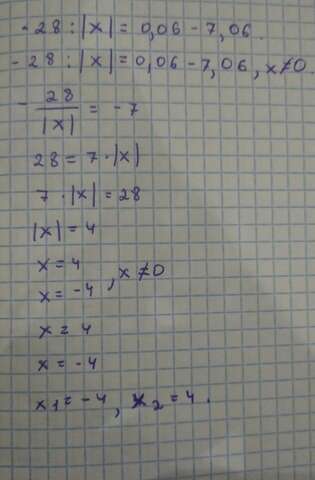 -28 : |x| = 0,06 - 7,06.
-28 : |x| = 0,06 - 7,06, x≠0.
- 28/|x| = -7
28 = 7 · |x|
7 · |x| = 28
|x| = 4
x = 4
x = -4 , x ≠ 0
x = 4
x = -4
x₁ = -4, x₂ = 4.